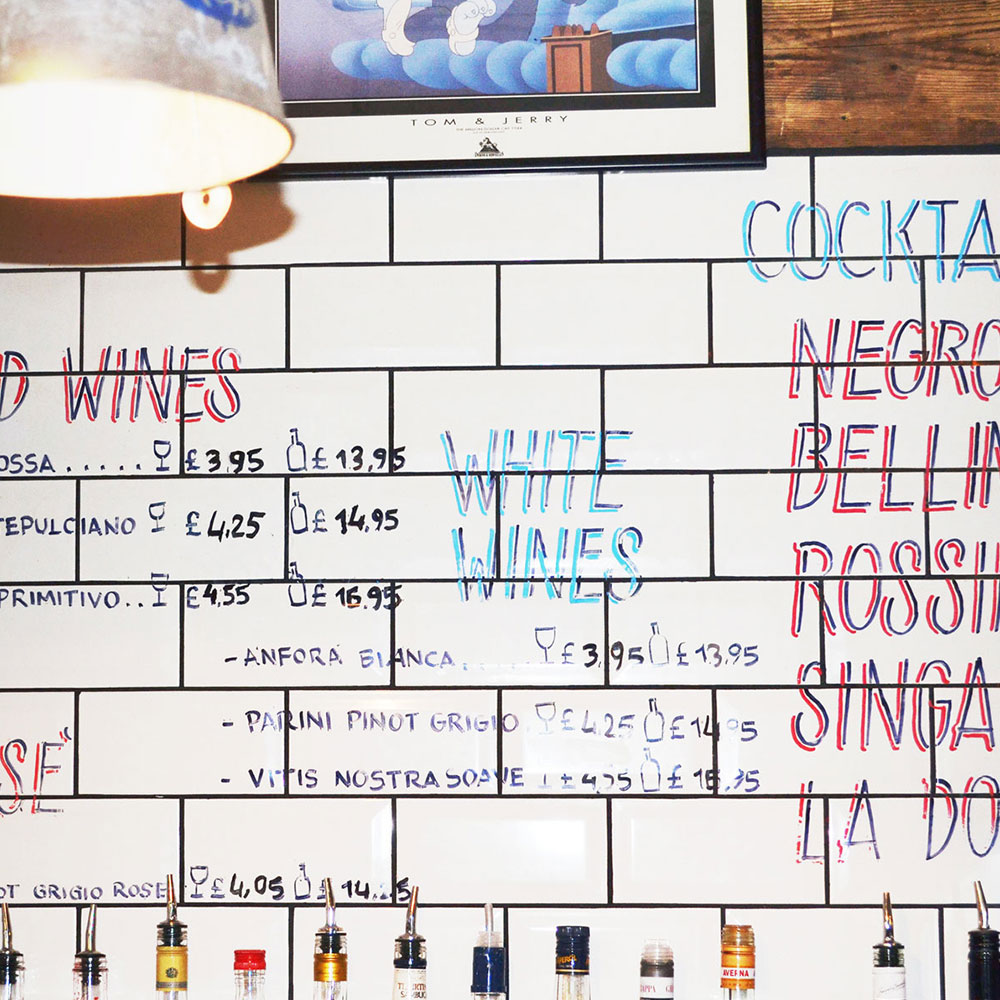 TOM & JERRY
COCKTA
NEGRO
BELLIN
ROSSI
SINGA
LA DO
D WINES
OSSA ..... £3,95 £13,95
TEPULCIANO £4,25 £14,95
PRIMITIVO.. £4,55 £15,95
WHITE
WINES
- ANFORA BIANCA...... £3,95 £13,95
- PARINI PINOT GRIGIO £4,25 £14,95
- VITIS NOSTRA SOAVE £15,95
SE"
OT GRIGIO ROSE £4,05
AVERNA